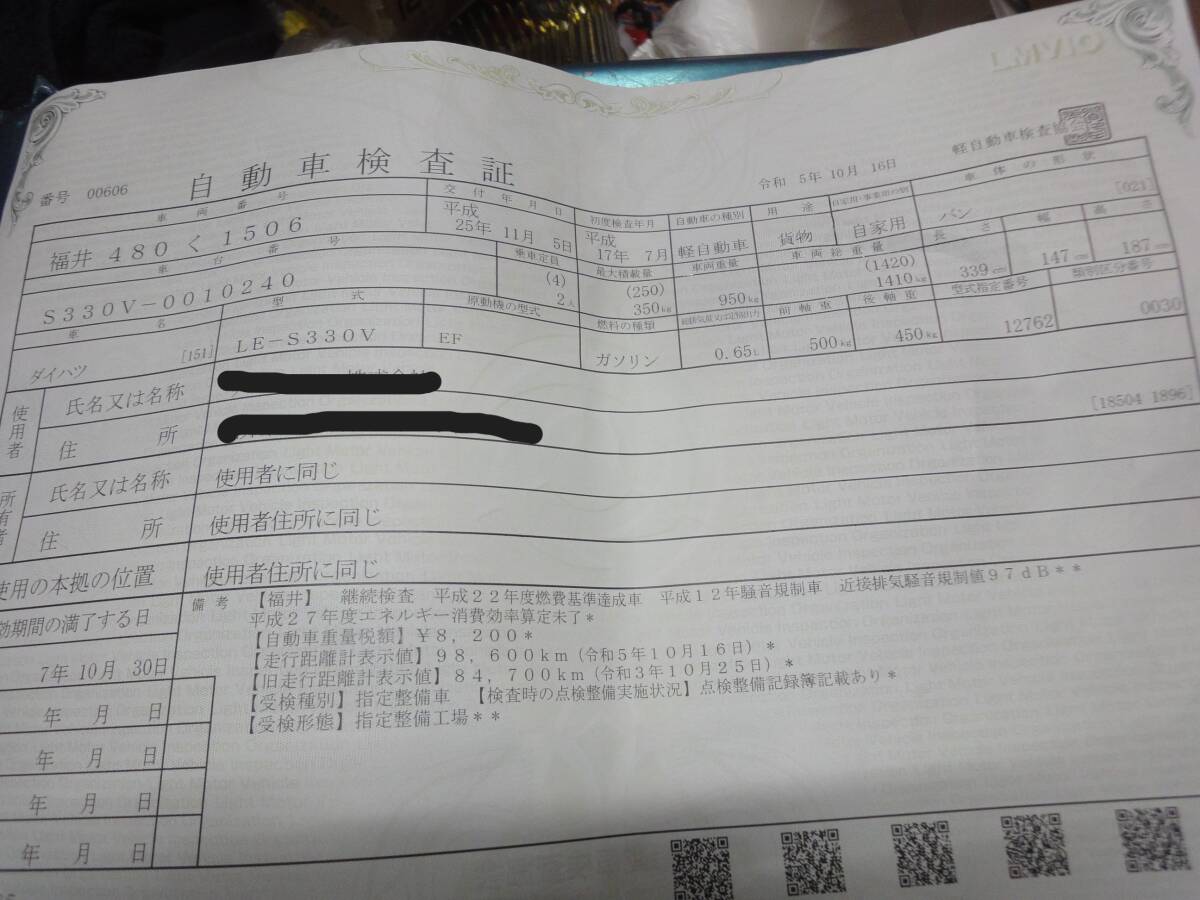 番号 00606
自動車検査証
令和 5年 10月 16日
軽自動車検査協会
車両番号
交付年月日
初度検査年月
自動車の種別
用途
自家用・事業用の別
車体の形状
福井 480 く 1506
平成
25年 11月 5日
平成
17年 7月
軽自動車
貨物
自家用
バン
[021]
車台番号
乗車定員
最大積載量
車両重量
車両総重量
長さ
幅
高さ
S330V-0010240
(4)
2人
(250)
350kg
950kg
(1420)
1410kg
339cm
147cm
187cm
車名
型式
原動機の型式
燃料の種類
総排気量又は定格出力
前軸重
後軸重
型式指定番号
類別区分番号
ダイハツ
[151]
LE-S330V
EF
ガソリン
0.65L
500kg
450kg
12762
0030
使用者
氏名又は名称
住所
[18504 1896]
所有者
氏名又は名称
使用者に同じ
住所
使用者住所に同じ
使用の本拠の位置
使用者住所に同じ
効期間の満了する日
7年 10月 30日
年 月 日
年 月 日
年 月 日
年 月 日
備考
【福井】 継続検査 平成22年度燃費基準達成車 平成12年騒音規制車 近接排気騒音規制値97dB**
平成27年度エネルギー消費効率算定未了*
【自動車重量税額】¥8,200*
【走行距離計表示値】98,600km(令和5年10月16日)*
【旧走行距離計表示値】84,700km(令和3年10月25日)*
【受検種別】指定整備車 【検査時の点検整備実施状況】点検整備記録簿記載あり*
【受検形態】指定整備工場**